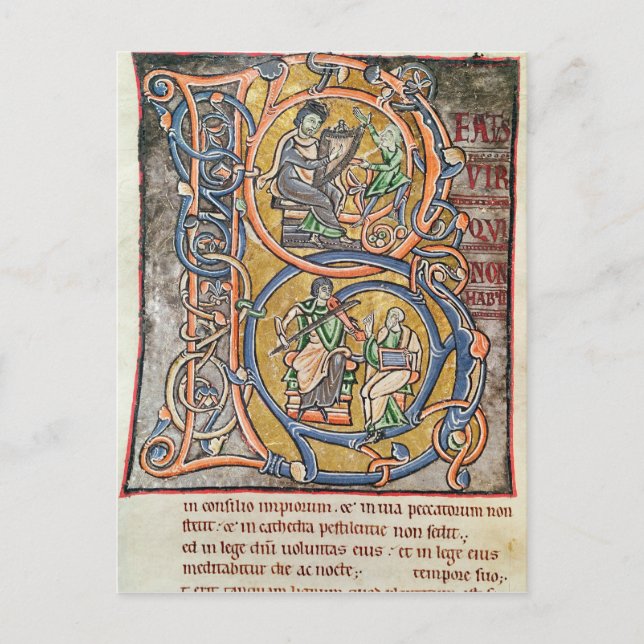 B
EATS
VIR
QVI
NON
HABIIT
in consilio impiorum. & in uia peccatorum non
stetit: & in cathedra pestilentie non sedit;
ed in lege dñi uoluntas eius: et in lege eius
meditabitur die ac nocte; tempore suo;